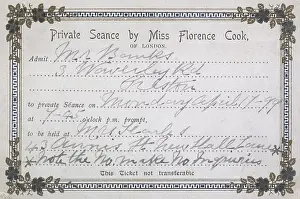 Private Seance by Miss Florence Cook,
OF LONDON.
Admit Mr Banks
3
Preston
to private Séance on Monday April
at 7- o'clock p.m. prompt,
to be held at Mrs
43 St New Hall Lane
* note the No, make no inquiries
This Ticket not transferable